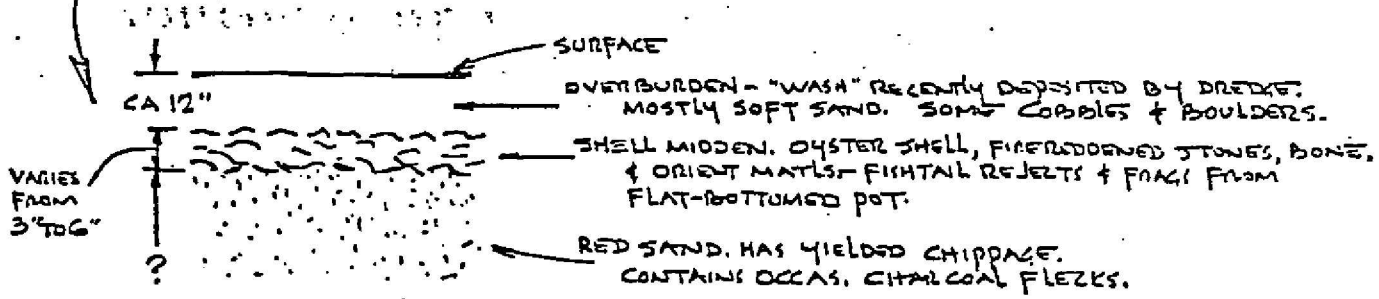 SURFACE
CA 12"
OVERBURDEN - "WASH" RECENTLY DEPOSITED BY DREDGE.
MOSTLY SOFT SAND. SOME COBBLES & BOULDERS.
SHELL MIDDEN. OYSTER SHELL, FIREREDDENED STONES, BONE,
& ORIENT MATLS - FISHTAIL REJECTS & FRAGS FROM
FLAT-BOTTOMED POT.
VARIES
FROM
3" TO 6"
?
RED SAND. HAS YIELDED CHIPPAGE.
CONTAINS OCCAS. CHARCOAL FLECKS.